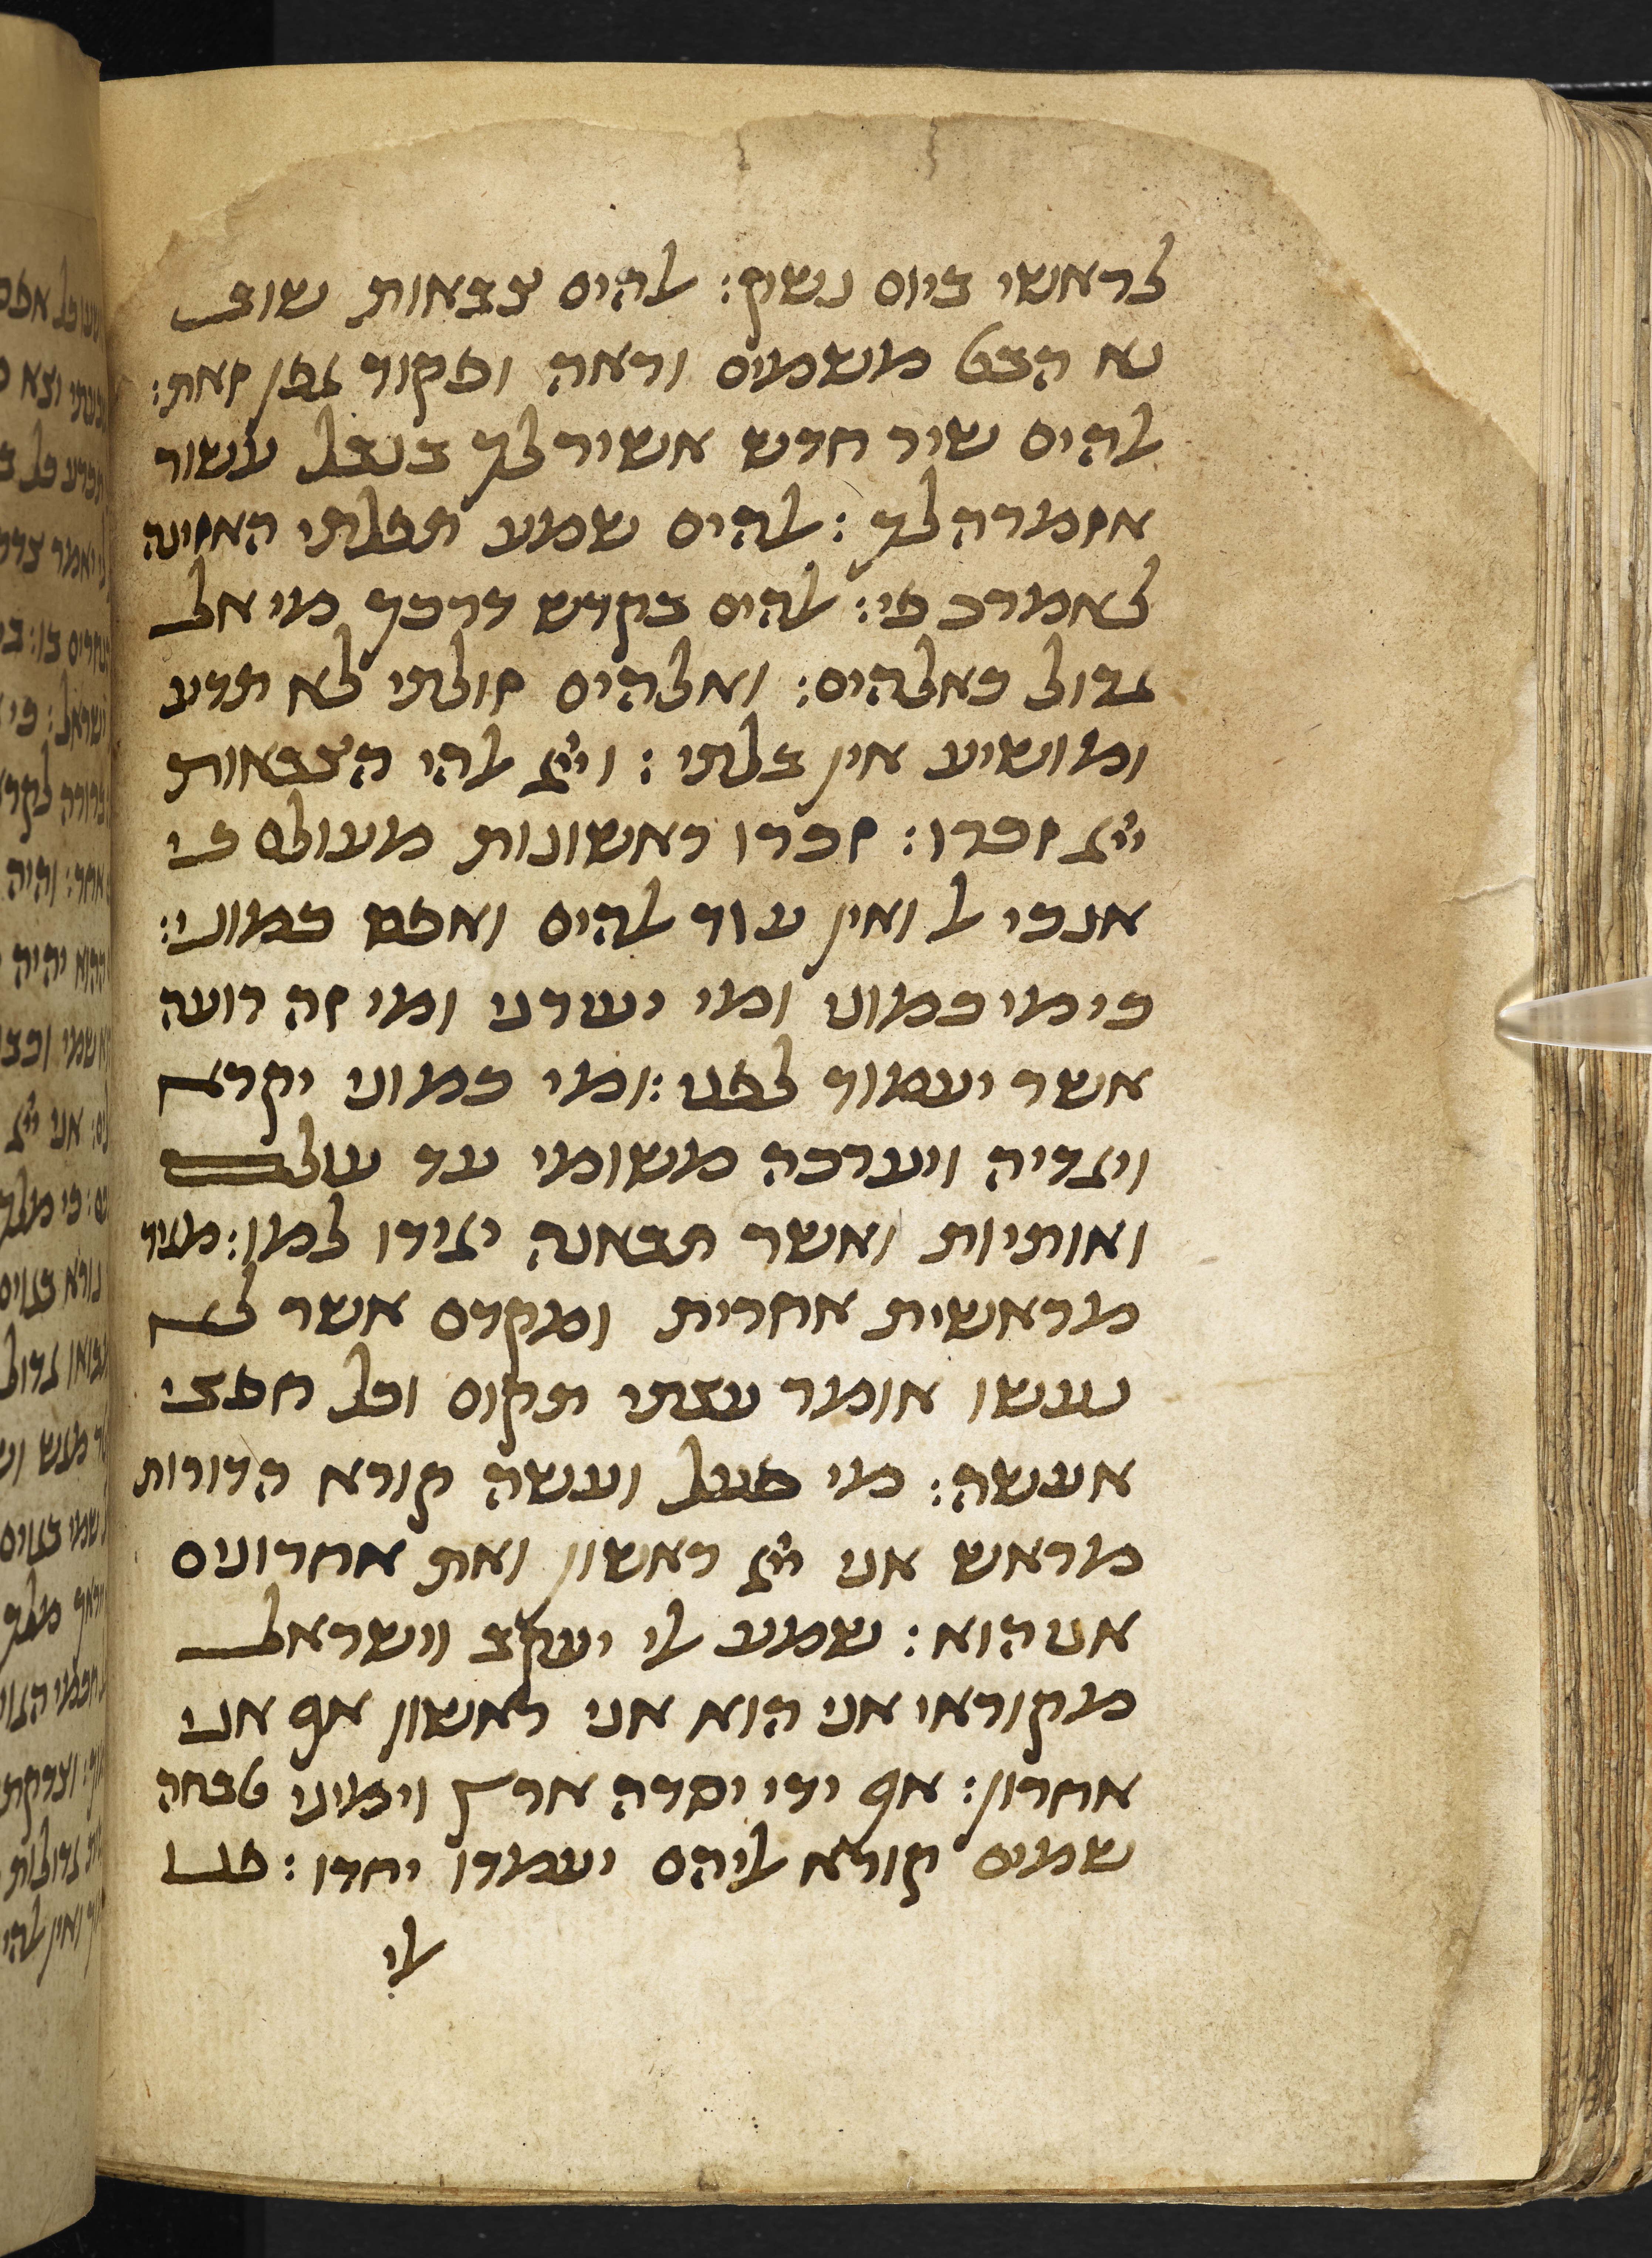 לראשי ביום נשק: ﭏהים צבאות שוב
נא הבט משמים וראה ופקוד גפן זאת:
ﭏהים שיר חדש אשיר לך בנבל עשור
אזמרה לך: ﭏהים שמע תפלתי האזינה
לאמרי פי: ﭏהים בקדש דרכך מי אל
גדול כאלהים: ואלהים זולתי לא תדע
ומושיע אין בלתי: וייי ﭏהי הצבאות
ייי זכרו: זכרו ראשונות מעולם כי
אנכי ﭏ ואין עוד ﭏהים ואפס כמוני:
כי מי כמוני ומי יעדני ומי זה רועה
אשר יעמוד לפני: ומי כמוני יקרא
ויגדיה ויערכה משומי עד עולם
ואותיות ואשר תבאנה יגידו למו: מגיד
מראשית אחרית ומקדם אשר לא
נעשו אומר עצתי תקום וכל חפצי
אעשה: מי פעל ועשה קורא הדורות
מראש אני ייי ראשון ואת אחרונים
אני הוא: שמע ﭏי יעקב וישראל
מקוראי אני הוא אני ראשון אף אני
אחרון: אף ידי יסדה ארץ וימיני טבחה
שמים קורא ﭏיהם יעמדו יחדו: פנו
ﭏי